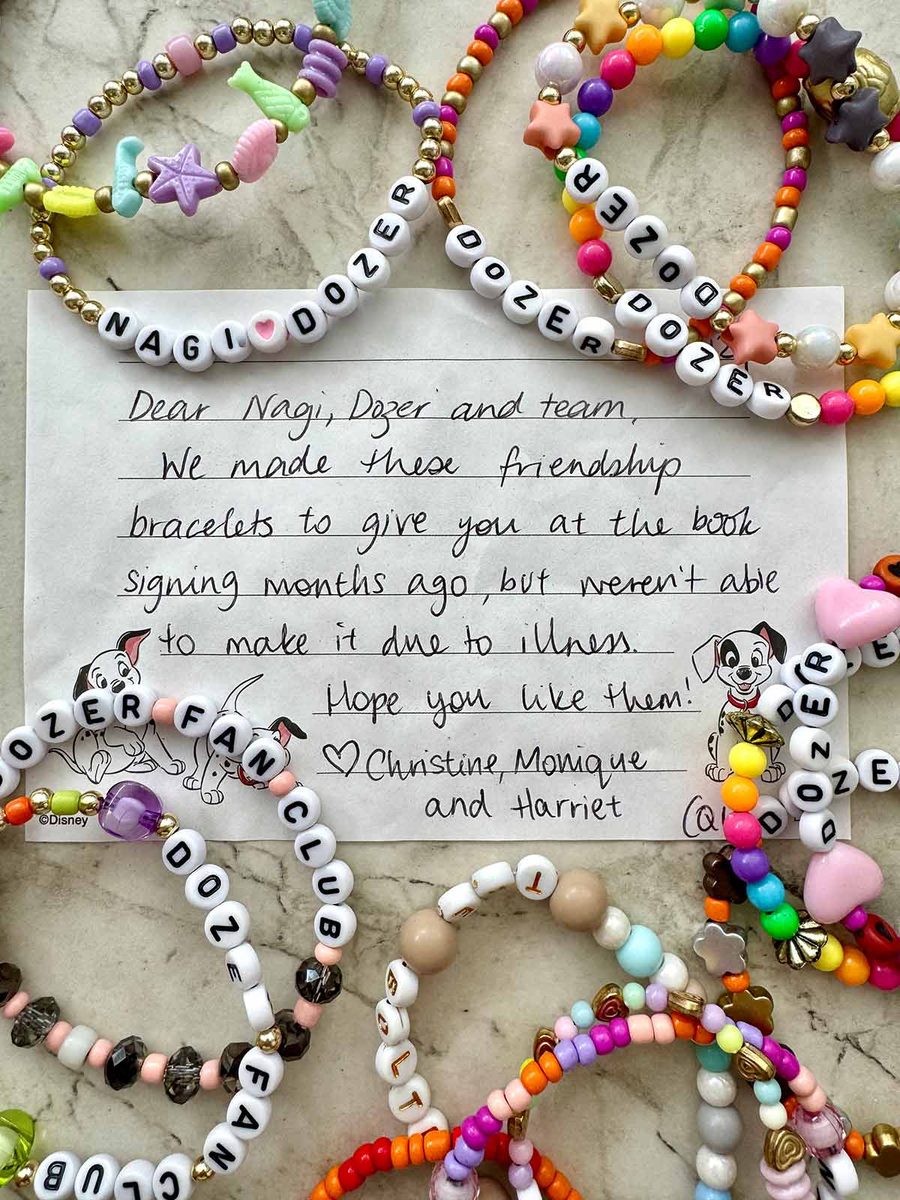 NAGI DOZER
DOZER
DOZER
DOZER
Dear Nagi, Dozer and team,
We made these friendship
bracelets to give you at the book
signing months ago, but weren't able
to make it due to illness.
Hope you like them!
♡ Christine, Monique
and Harriet
(Q
©Disney
DOZER FAN CLUB
DOZE
FAN CLUB
DOZER